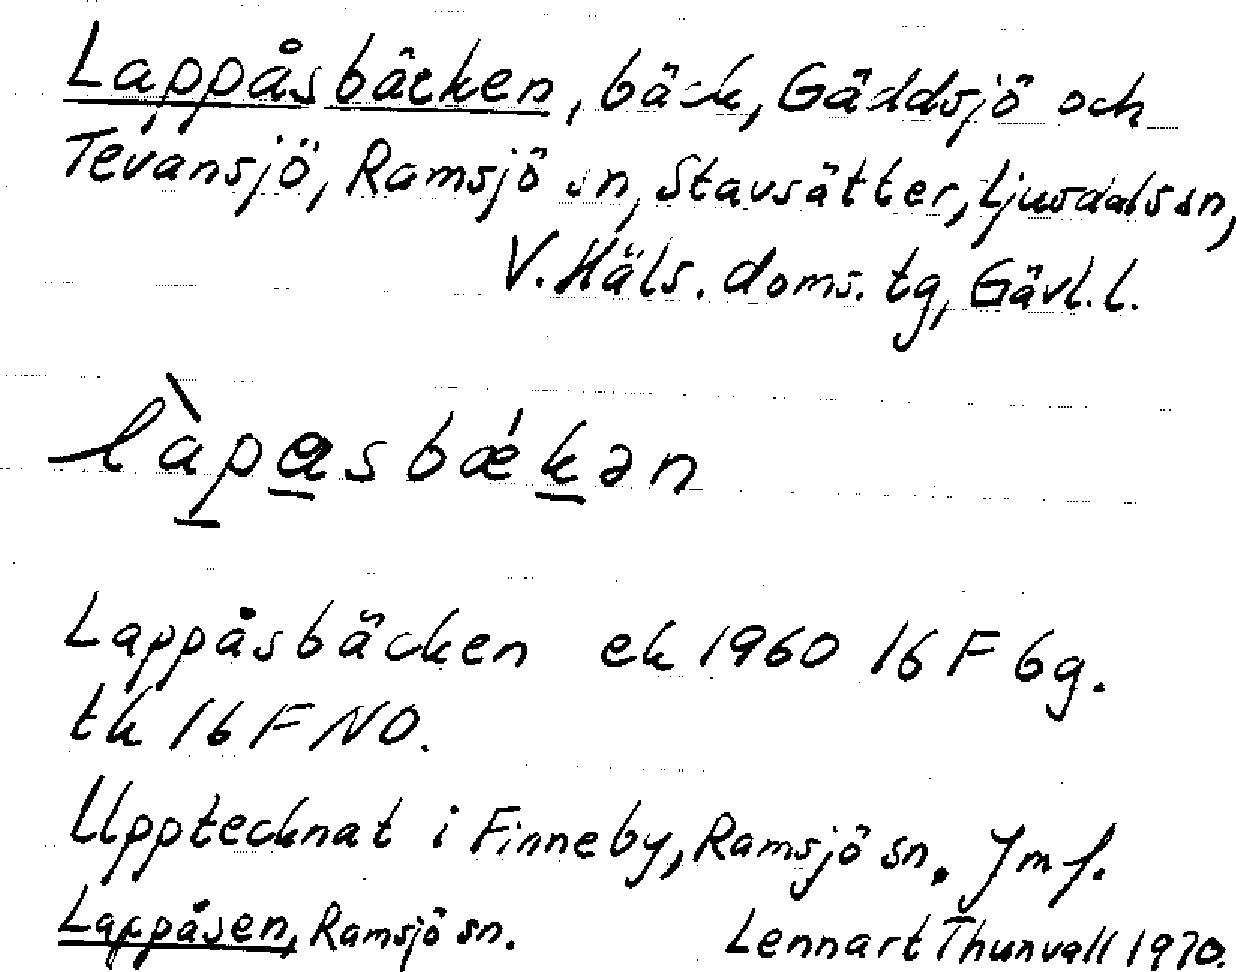 Lappåsbäcken, bäck, Gäddsjö och
Tevansjö, Ramsjö sn, Stavsätter, Ljusdals sn,
V. Häls. doms. tg, Gävl. l.
làpasbǽkən
Lappåsbäcken ek 1960 16 F 6g.
tk 16 F NO.
Upptecknat i Finneby, Ramsjö sn. Jmf.
Lappåsen, Ramsjö sn.
Lennart Thunvall 1970.